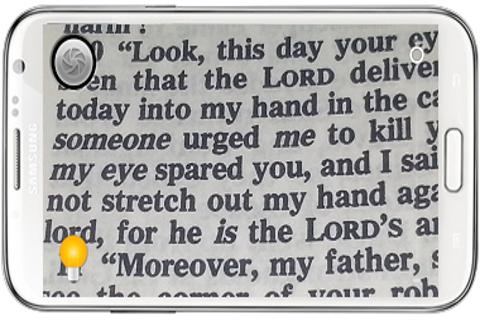 harm?
0 "Look, this day your ey
seen that the LORD deliver
today into my hand in the ca
someone urged me to kill y
my eye spared you, and I sai
not stretch out my hand aga
lord, for he is the LORD'S an
"Moreover, my father, s
see the corner of your rob
SAMSUNG